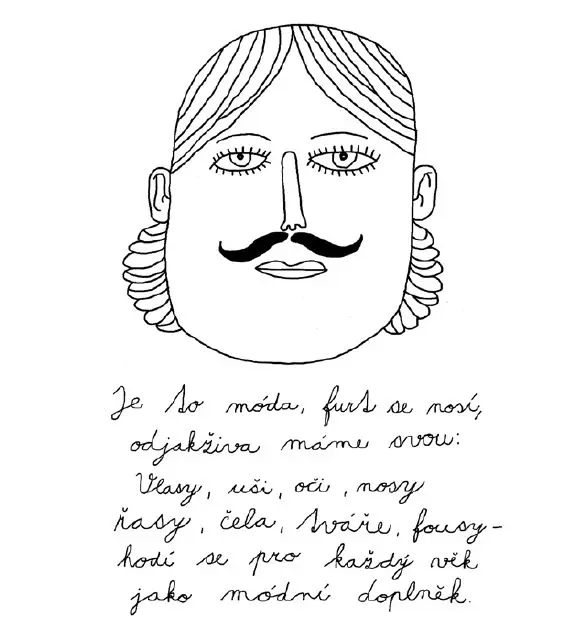 Je to móda, furt se nosí,
odjakživa máme svou:
Vlasy, uši, oči, nosy
řasy, čela, tváře, fousy -
hodí se pro každý věk
jako módní doplněk.